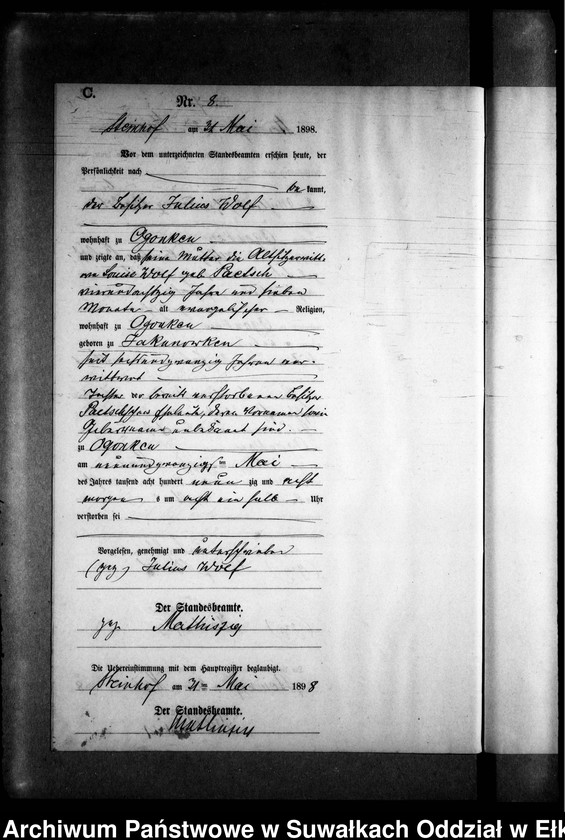 C.
Nr. 8.
Steinhof am 31 Mai 1898.
Vor dem unterzeichneten Standesbeamten erschien heute, der
Persönlichkeit nach
be kannt,
der Besitzer Julius Wolf
wohnhaft zu Ogonken
und zeigte an, daß seine Mutter die Altsitzerwitt-
we Louise Wolf geb Paetsch
vierundachtzig Jahre und sieben
Monate alt evangelischer Religion,
wohnhaft zu Ogonken
geboren zu Jakunowken
seit sechsundzwanzig Jahren ver-
wittwet
Tochter der bereits verstorbenen Besitzer
Paetschschen Eheleute, deren Vornamen sowie
Geburtsname unbekannt sind.
zu Ogonken
am neunundzwanzigsten Mai
des Jahres tausend acht hundert neun zig und acht
morgens um acht ein halb Uhr
verstorben sei
Vorgelesen, genehmigt und unterschrieben
(gez) Julius Wolf
Der Standesbeamte.
gez. Mathiszig
Die Uebereinstimmung mit dem Hauptregister beglaubigt.
Steinhof am 31 ten Mai 1898
Der Standesbeamte.
Mathiszig
Archiwum Państwowe w Suwałkach Oddział w Ełk